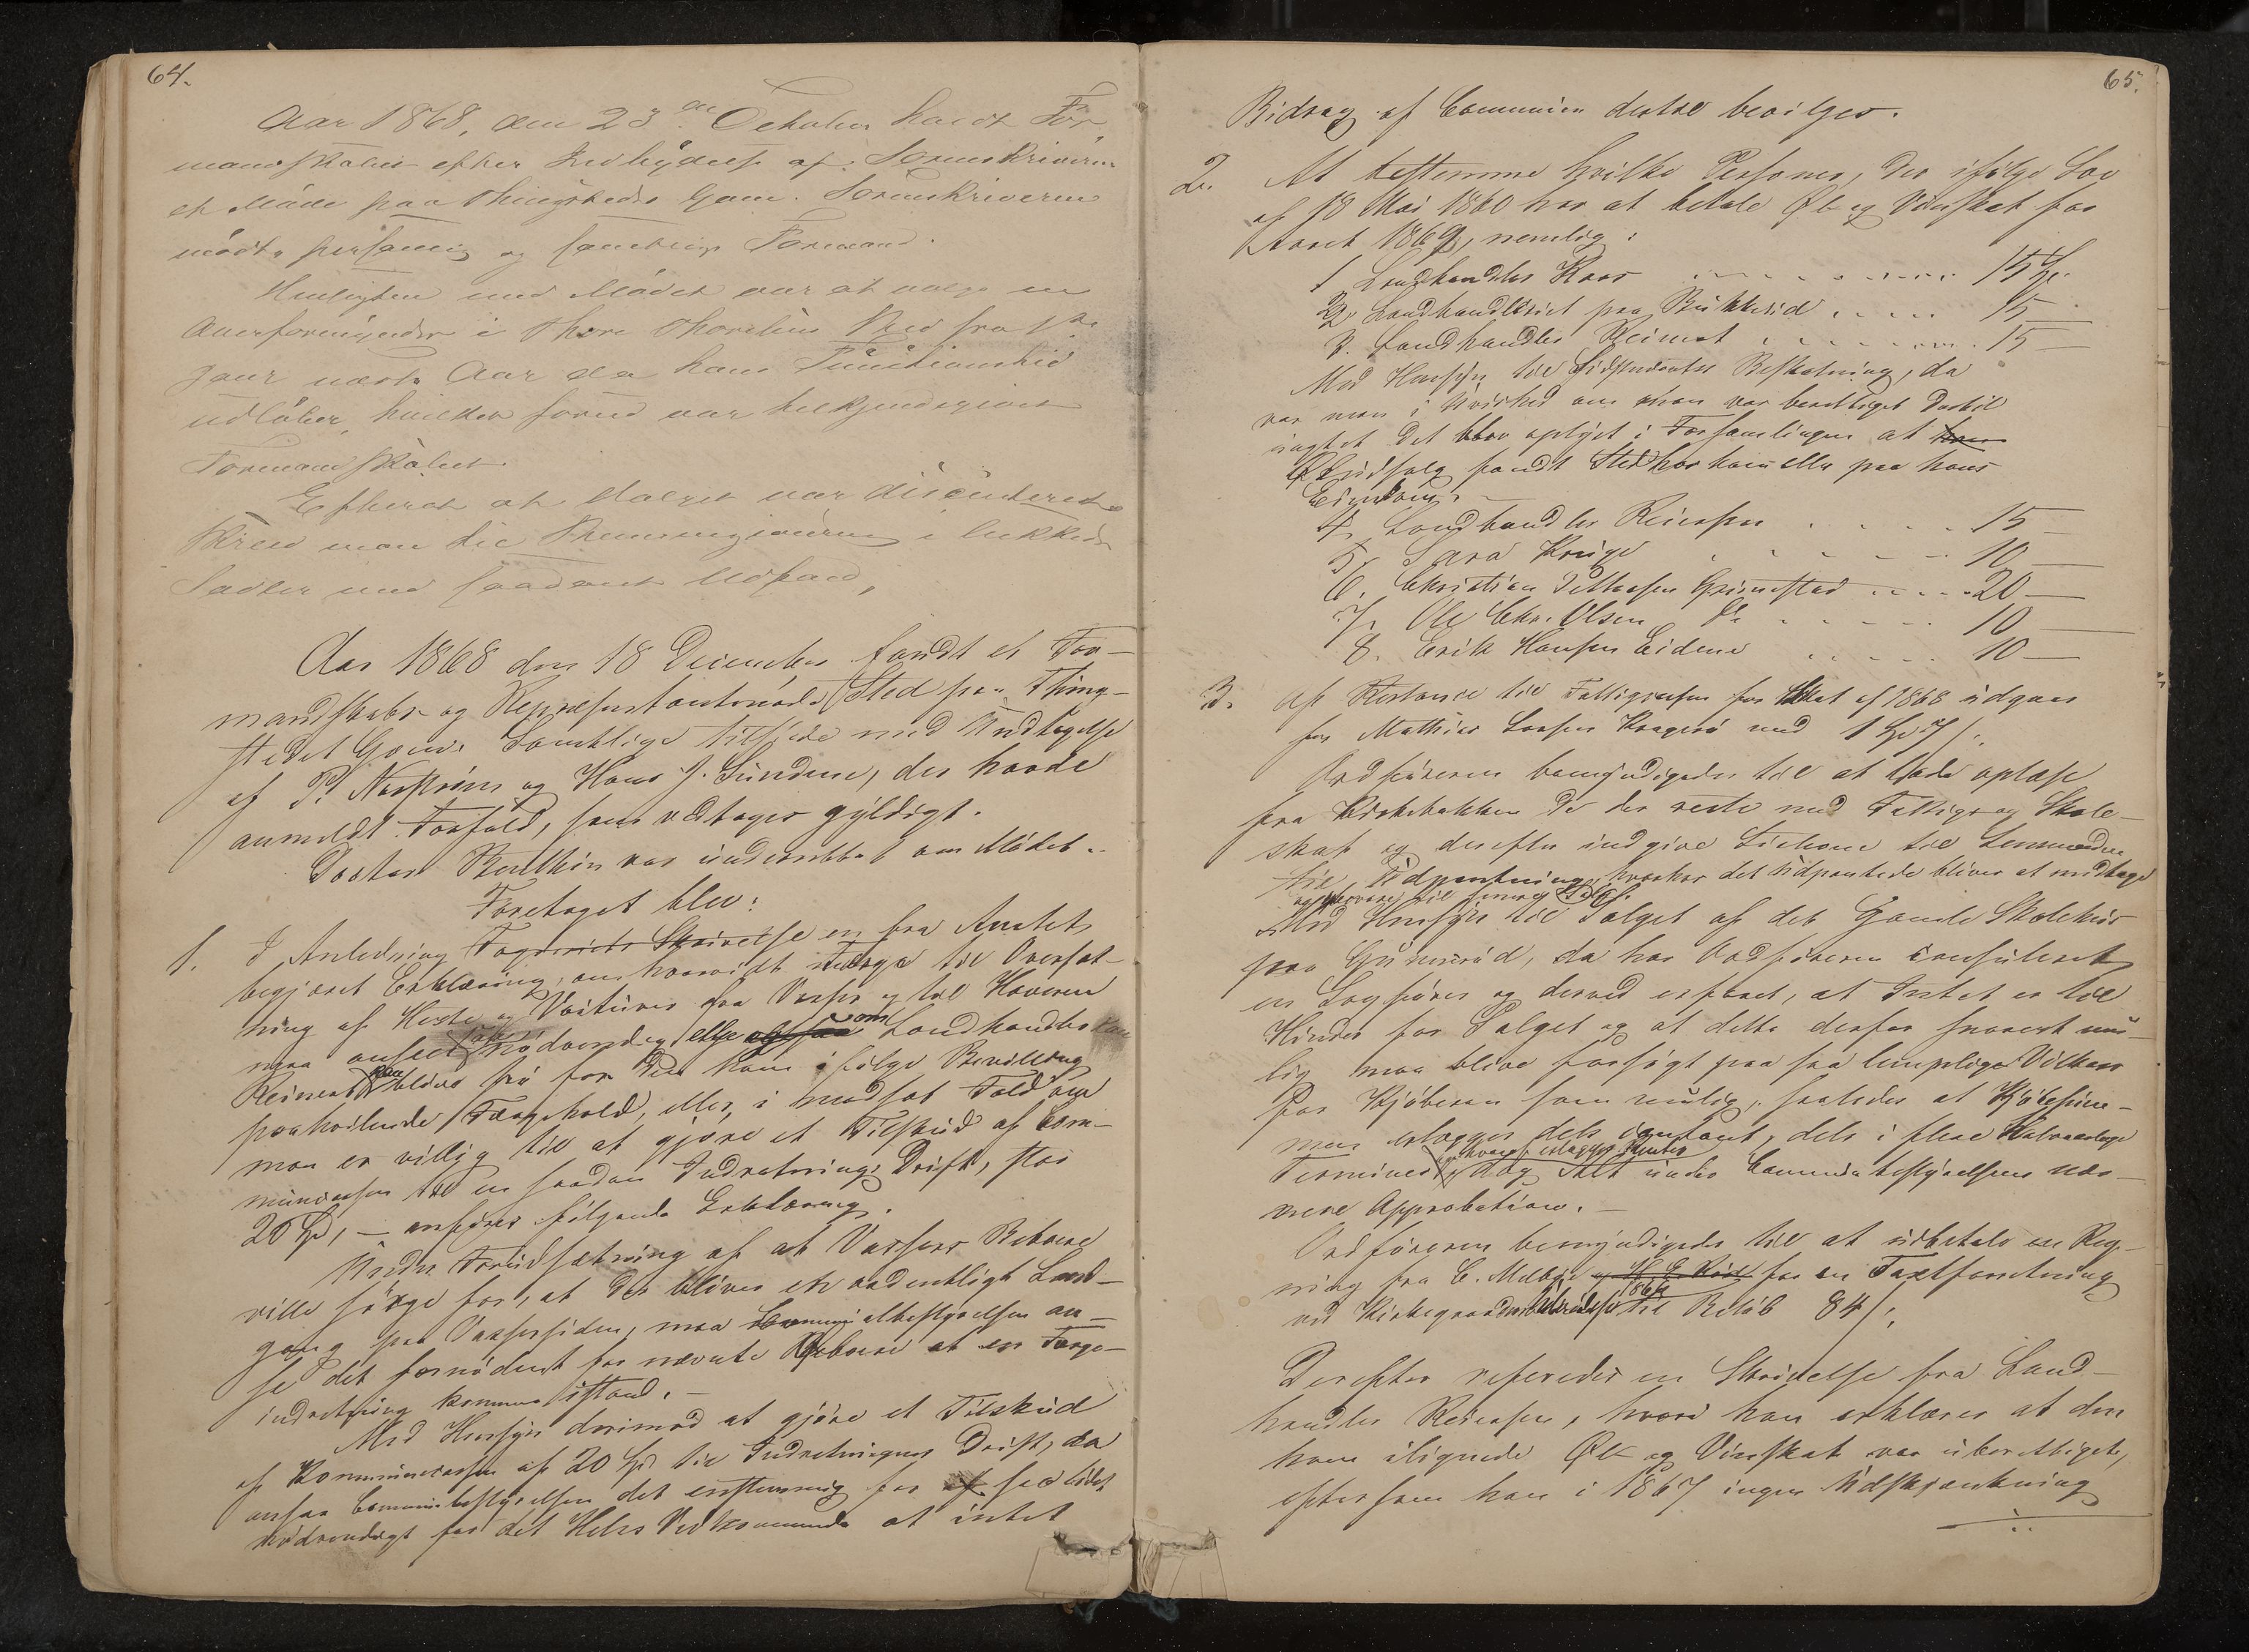 64.
Aar 1868, den 23de October holdt For¬
mandskabet efter Indbydelse af Sorenskriveren
et Möde paa Thingstedet Gom. Sorenskriveren
mödte personlig og samtlige Formænd.
Hensigten med Mödet var at vælge en
Overformynder i Thore Thorelius Sted fra 1ste
Janr næste Aar da hans Functionstid
udlöber, hvilket forud var bekjendtgjort
Formandskabet.
Efterat at Valget var discuteret
skred man til Stemmegivning i lukkede
Sedler med saadant Udfald,
Aar 1868 den 18 December fandt et For-
mandskabs- og Repræsentantmöde Sted paa Thing-
stedet Gom. Samtlige tilstede med Undtagelse
af P. og Hans J. Sundene, der havde
anmeldt Forfald, som vedtoges gyldigt.
Doctor var underrettet om Mödet.
Foretaget blev:
1. I Anledning Fogderiets Skrivelse en fra Amtet
begjæret Erklæring, om hvorvidt Færge til Oversæt-
ning af Heste og Voiturer fra Vasser og til Hoveren
maa ansees for nödvendig eller ogsaa om Landhandler
Reinert kan blive fri for den ham ifölge Bevilling
paahvilende Færgehold, eller i modsat Fald om
man er villig til at gjöre et Tilskud af Com-
munecassen til en saadan Indretnings Drift, stor
20 Spd, — anföres fölgende Erklæring.
Under Forudsætning af at Vassers Beboere
ville sörge for, at der bliver et ordentligt Land-
gang paa Vassersiden, maa Communalbestyrelsen an-
se det fornödent for nævnte Beboere at en Færge-
indretning kommer istand. —
Med Hensyn derimod at gjöre et Tilskud
af Kommunecassen af 20 Spd til Indretningens Drift, da
anser Communebestyrelsen det enstemmig for af saa lidet
nödvendigt for det Heles Vedkommende at intet
65.
Bidrag af Communen dertil bevilges.
2. At bestemme hvilke Personer, der ifölge Lov
af 18 Mai 1860 har at betale Öl og Vinskat for
Aaret 1869, nemlig:
1 Landhandler Roos . . . . . 15 Spd.
2. Landhandleriet paa Bukkerid . . . . . 15 —
3. Landhandler Reinert . . . . . 15 —
Med Hensyn til Sidstnævntes Beskatning, da
var man i Uvished om man var berettiget dertil
uagtet det blev oplyst i Forsamlingen at han
Öludsalg fandt Sted hos ham eller paa hans
Eiendom. —
4. Landhandler Reiersen . . . . . 15 —
5. Lars Kruge . . . . . 10 —
6. Christian Pettersen Grimestad . . . . . 20 —
7. Ole Chr. Olsen do . . . . . 10 —
8. Erik Hansen Eidene . . . . . 10 —
3. Af Restance til Fattigcassen for Skat af 1868 udgaar
for Mathias Larsen Krageröe med 1 Spd 7 /.
Ordföreren bemyndigedes til at lade oplæse
fra Kirkebakken de der reste med Fattig- og Skole-
skat og derefter indgive Listerne til Lensmanden
til Udpantning, hvorhos det udpantede bliver at medtage
Med Hensyn til Salget af det Gamle Skolehus
paa Grimerød, da har Ordföreren consuleret
en Sagförer og derved erfaret, at Intet er til
Hinder for Salget og at dette derfor snarest mu-
lig maa blive forsögt paa saa lempelige Vilkaar
for Kjöberen som mulig, saaledes at Kjöbesum-
men erlægges dels contant, dels i flere Halvaarlige
Terminer, dog Alt under Communebestyrelsens nær-
mere Approbation. —
Ordföreren bemyndigedes til at udbetale en Reg-
ning fra C. Melböe for en Taxtforretning
ved Kirkegaardens til Belöb 84 /.
Derefter refereredes en Skrivelse fra Land-
handler Reiersen, hvori han erklærer at den
ham ilignede Öl og Vinskat var uberettiget,
eftersom han i 1867 ingen Udskjænkning